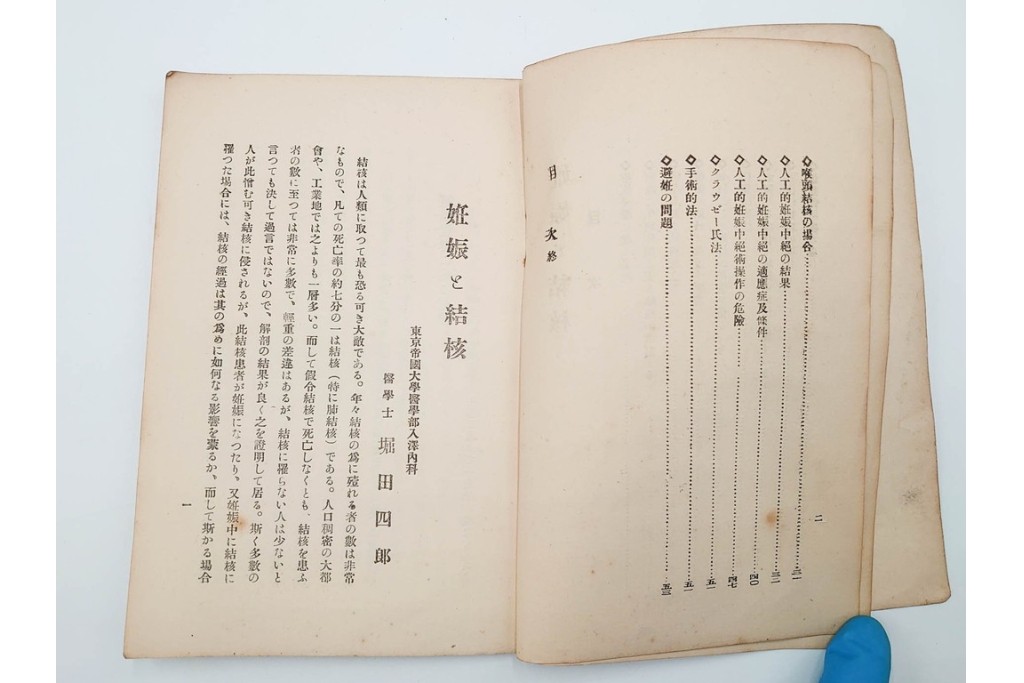 ◇喉頭結核の場合…………二一
◇人工的妊娠中絶の結果…………三二
◇人工的妊娠中絶の適應症及條件…………四〇
◇人工的妊娠中絶術操作の危險…………四七
◇クラウゼー氏法…………五一
◇手術的法…………五一
◇避妊の問題…………五三
目次終
二
姙娠と結核
東京帝國大學醫學部入澤內科
醫學士 堀田四郎
結核は人類に取つて最も恐る可き大敵である。年々結核の爲に殪れる者の數は非常
なもので、凡ての死亡率の約七分の一は結核(特に肺結核)である。人口稠密の大都
會や、工業地では之よりも一層多い。而して假令結核で死亡しなくとも、結核を患ふ
者の數に至つては非常に多數で、輕重の差違はあるが、結核に罹らない人は少ないと
言つても決して過言ではないので、解剖の結果が良く之を證明して居る。斯く多數の
人が此憎む可き結核に侵されるが、此結核患者が姙娠になつたり、又姙娠中に結核に
罹つた場合には、結核の經過は其の爲めに如何なる影響を蒙るか、而して斯かる場合
一